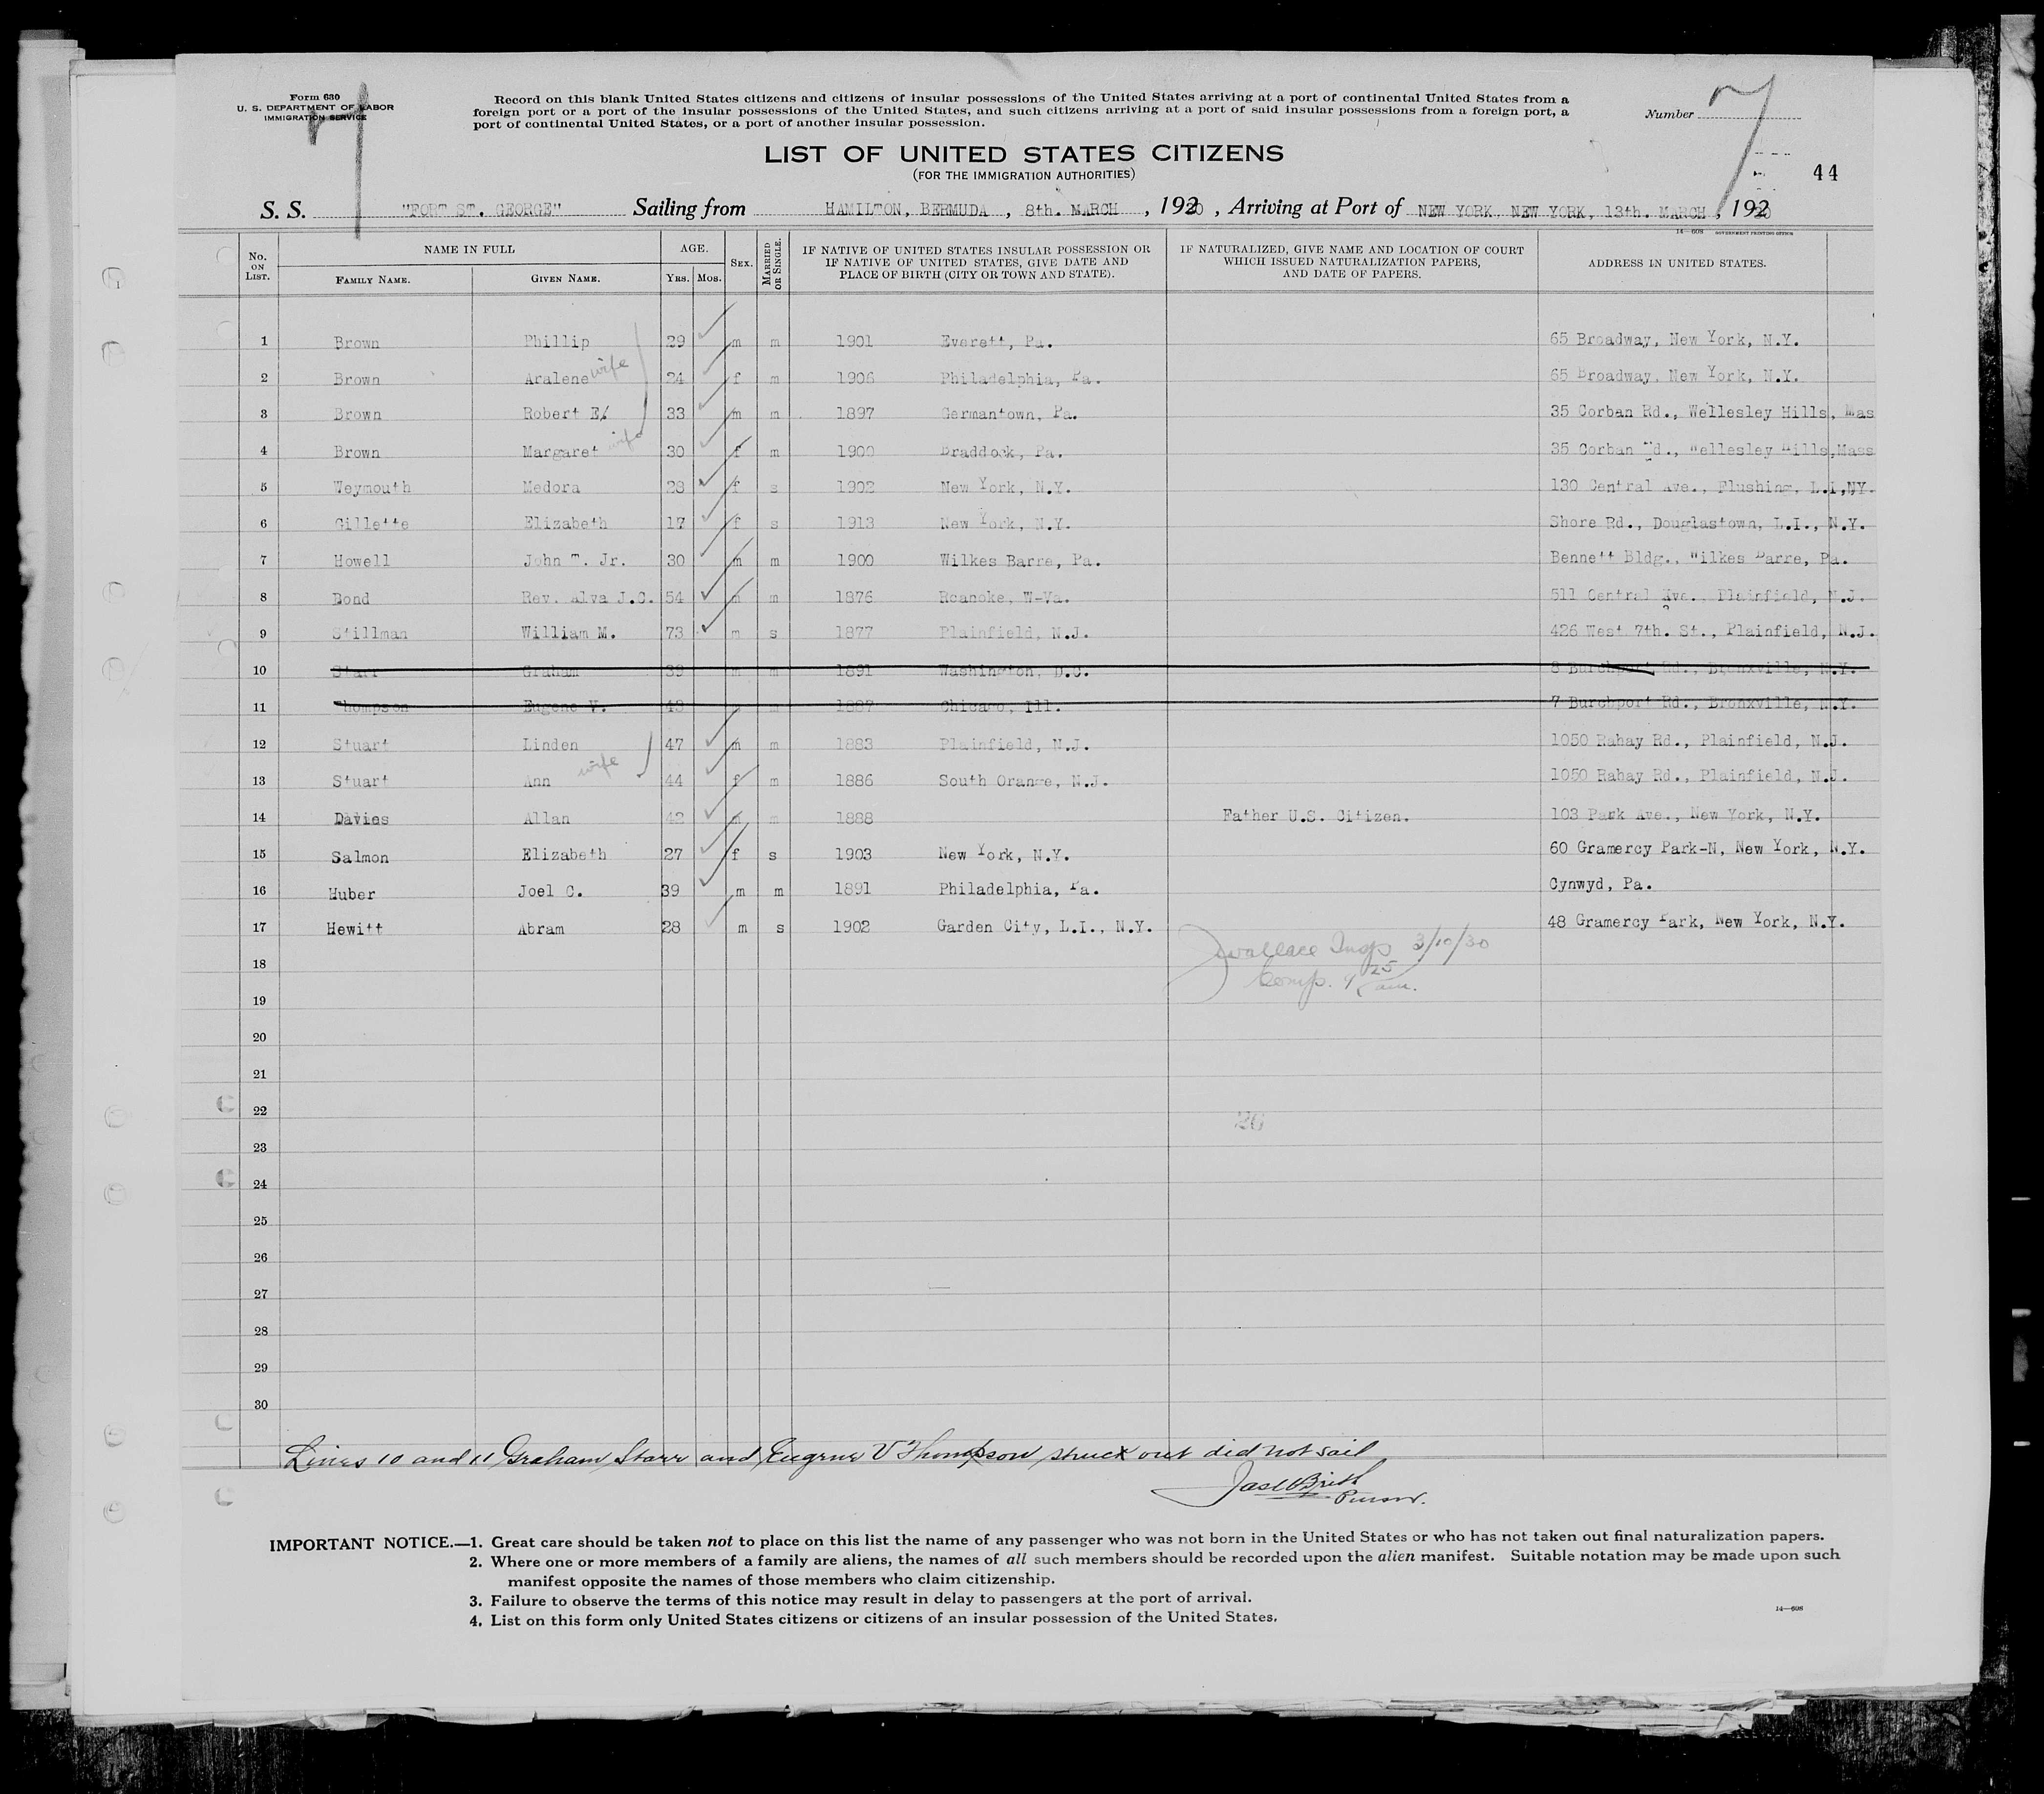 Form 630
U. S. DEPARTMENT OF LABOR
IMMIGRATION SERVICE
Record on this blank United States citizens and citizens of insular possessions of the United States arriving at a port of continental United States from a
foreign port or a port of the insular possessions of the United States, and such citizens arriving at a port of said insular possessions from a foreign port, a
port of continental United States, or a port of another insular possession.
Number 7
7
44
LIST OF UNITED STATES CITIZENS
(FOR THE IMMIGRATION AUTHORITIES)
S. S. "FORT ST. GEORGE" Sailing from HAMILTON, BERMUDA, 8th. MARCH, 19230, Arriving at Port of NEW YORK NEW YORK, 13th. MARCH, 192
14—608 GOVERNMENT PRINTING OFFICE
No. ON LIST. NAME IN FULL FAMILY NAME. GIVEN NAME. AGE. YRS. MOS. SEX. MARRIED OR SINGLE. IF NATIVE OF UNITED STATES INSULAR POSSESSION OR IF NATIVE OF UNITED STATES, GIVE DATE AND PLACE OF BIRTH (CITY OR TOWN AND STATE). IF NATURALIZED, GIVE NAME AND LOCATION OF COURT WHICH ISSUED NATURALIZATION PAPERS, AND DATE OF PAPERS. ADDRESS IN UNITED STATES.
1 Brown Phillip 29 m m 1901 Everett, Pa. 65 Broadway, New York, N.Y.
2 Brown Aralene wife 24 f m 1906 Philadelphia, Pa. 65 Broadway, New York, N.Y.
3 Brown Robert E. 33 m m 1897 Germantown, Pa. 35 Corban Rd., Wellesley Hills, Mas
4 Brown Margaret wife 30 f m 1900 Braddock, Pa. 35 Corban Rd., Wellesley Hills, Mass
5 Weymouth Medora 28 f s 1902 New York, N.Y. 130 Central Ave., Flushing, L.I, NY.
6 Gillette Elizabeth 17 f s 1913 New York, N.Y. Shore Rd., Douglastown, L.I., N.Y.
7 Howell John T. Jr. 30 m m 1900 Wilkes Barre, Pa. Bennett Bldg., Wilkes Barre, Pa.
8 Bond Rev. Alva J.C. 54 m m 1876 Roanoke, W-Va. 511 Central Ave. Plainfield, N.J.
9 Stillman William M. 73 m s 1877 Plainfield, N.J. 426 West 7th. St., Plainfield, N.J.
10 Starr Graham 39 m m 1891 Washington, D.C. 8 Burchport Rd., Bronxville, N.Y.
11 Thompson Eugene V. 43 m m 1887 Chicago, Ill. 7 Burchport Rd., Bronxville, N.Y.
12 Stuart Linden 47 m m 1883 Plainfield, N.J. 1050 Rahay Rd., Plainfield, N.J.
13 Stuart Ann wife 44 f m 1886 South Orange, N.J. 1050 Rahay Rd., Plainfield, N.J.
14 Davies Allan 42 m m 1888 Father U.S. Citizen. 103 Park Ave., New York, N.Y.
15 Salmon Elizabeth 27 f s 1903 New York, N.Y. 60 Gramercy Park-N, New York, N.Y.
16 Huber Joel C. 39 m m 1891 Philadelphia, Pa. Cynwyd, Pa.
17 Hewitt Abram 28 m s 1902 Garden City, L.I., N.Y. 48 Gramercy Park, New York, N.Y.
18 Wallace Insp 3/10/30
19 Comp. 25
20
21
22 26
23
24
25
26
27
28
29
30
Lines 10 and 11 Graham Starr and Eugene V Thompson struck out did not sail
Purser.
IMPORTANT NOTICE.—1. Great care should be taken not to place on this list the name of any passenger who was not born in the United States or who has not taken out final naturalization papers.
2. Where one or more members of a family are aliens, the names of all such members should be recorded upon the alien manifest. Suitable notation may be made upon such
manifest opposite the names of those members who claim citizenship.
3. Failure to observe the terms of this notice may result in delay to passengers at the port of arrival.
4. List on this form only United States citizens or citizens of an insular possession of the United States.
14—608